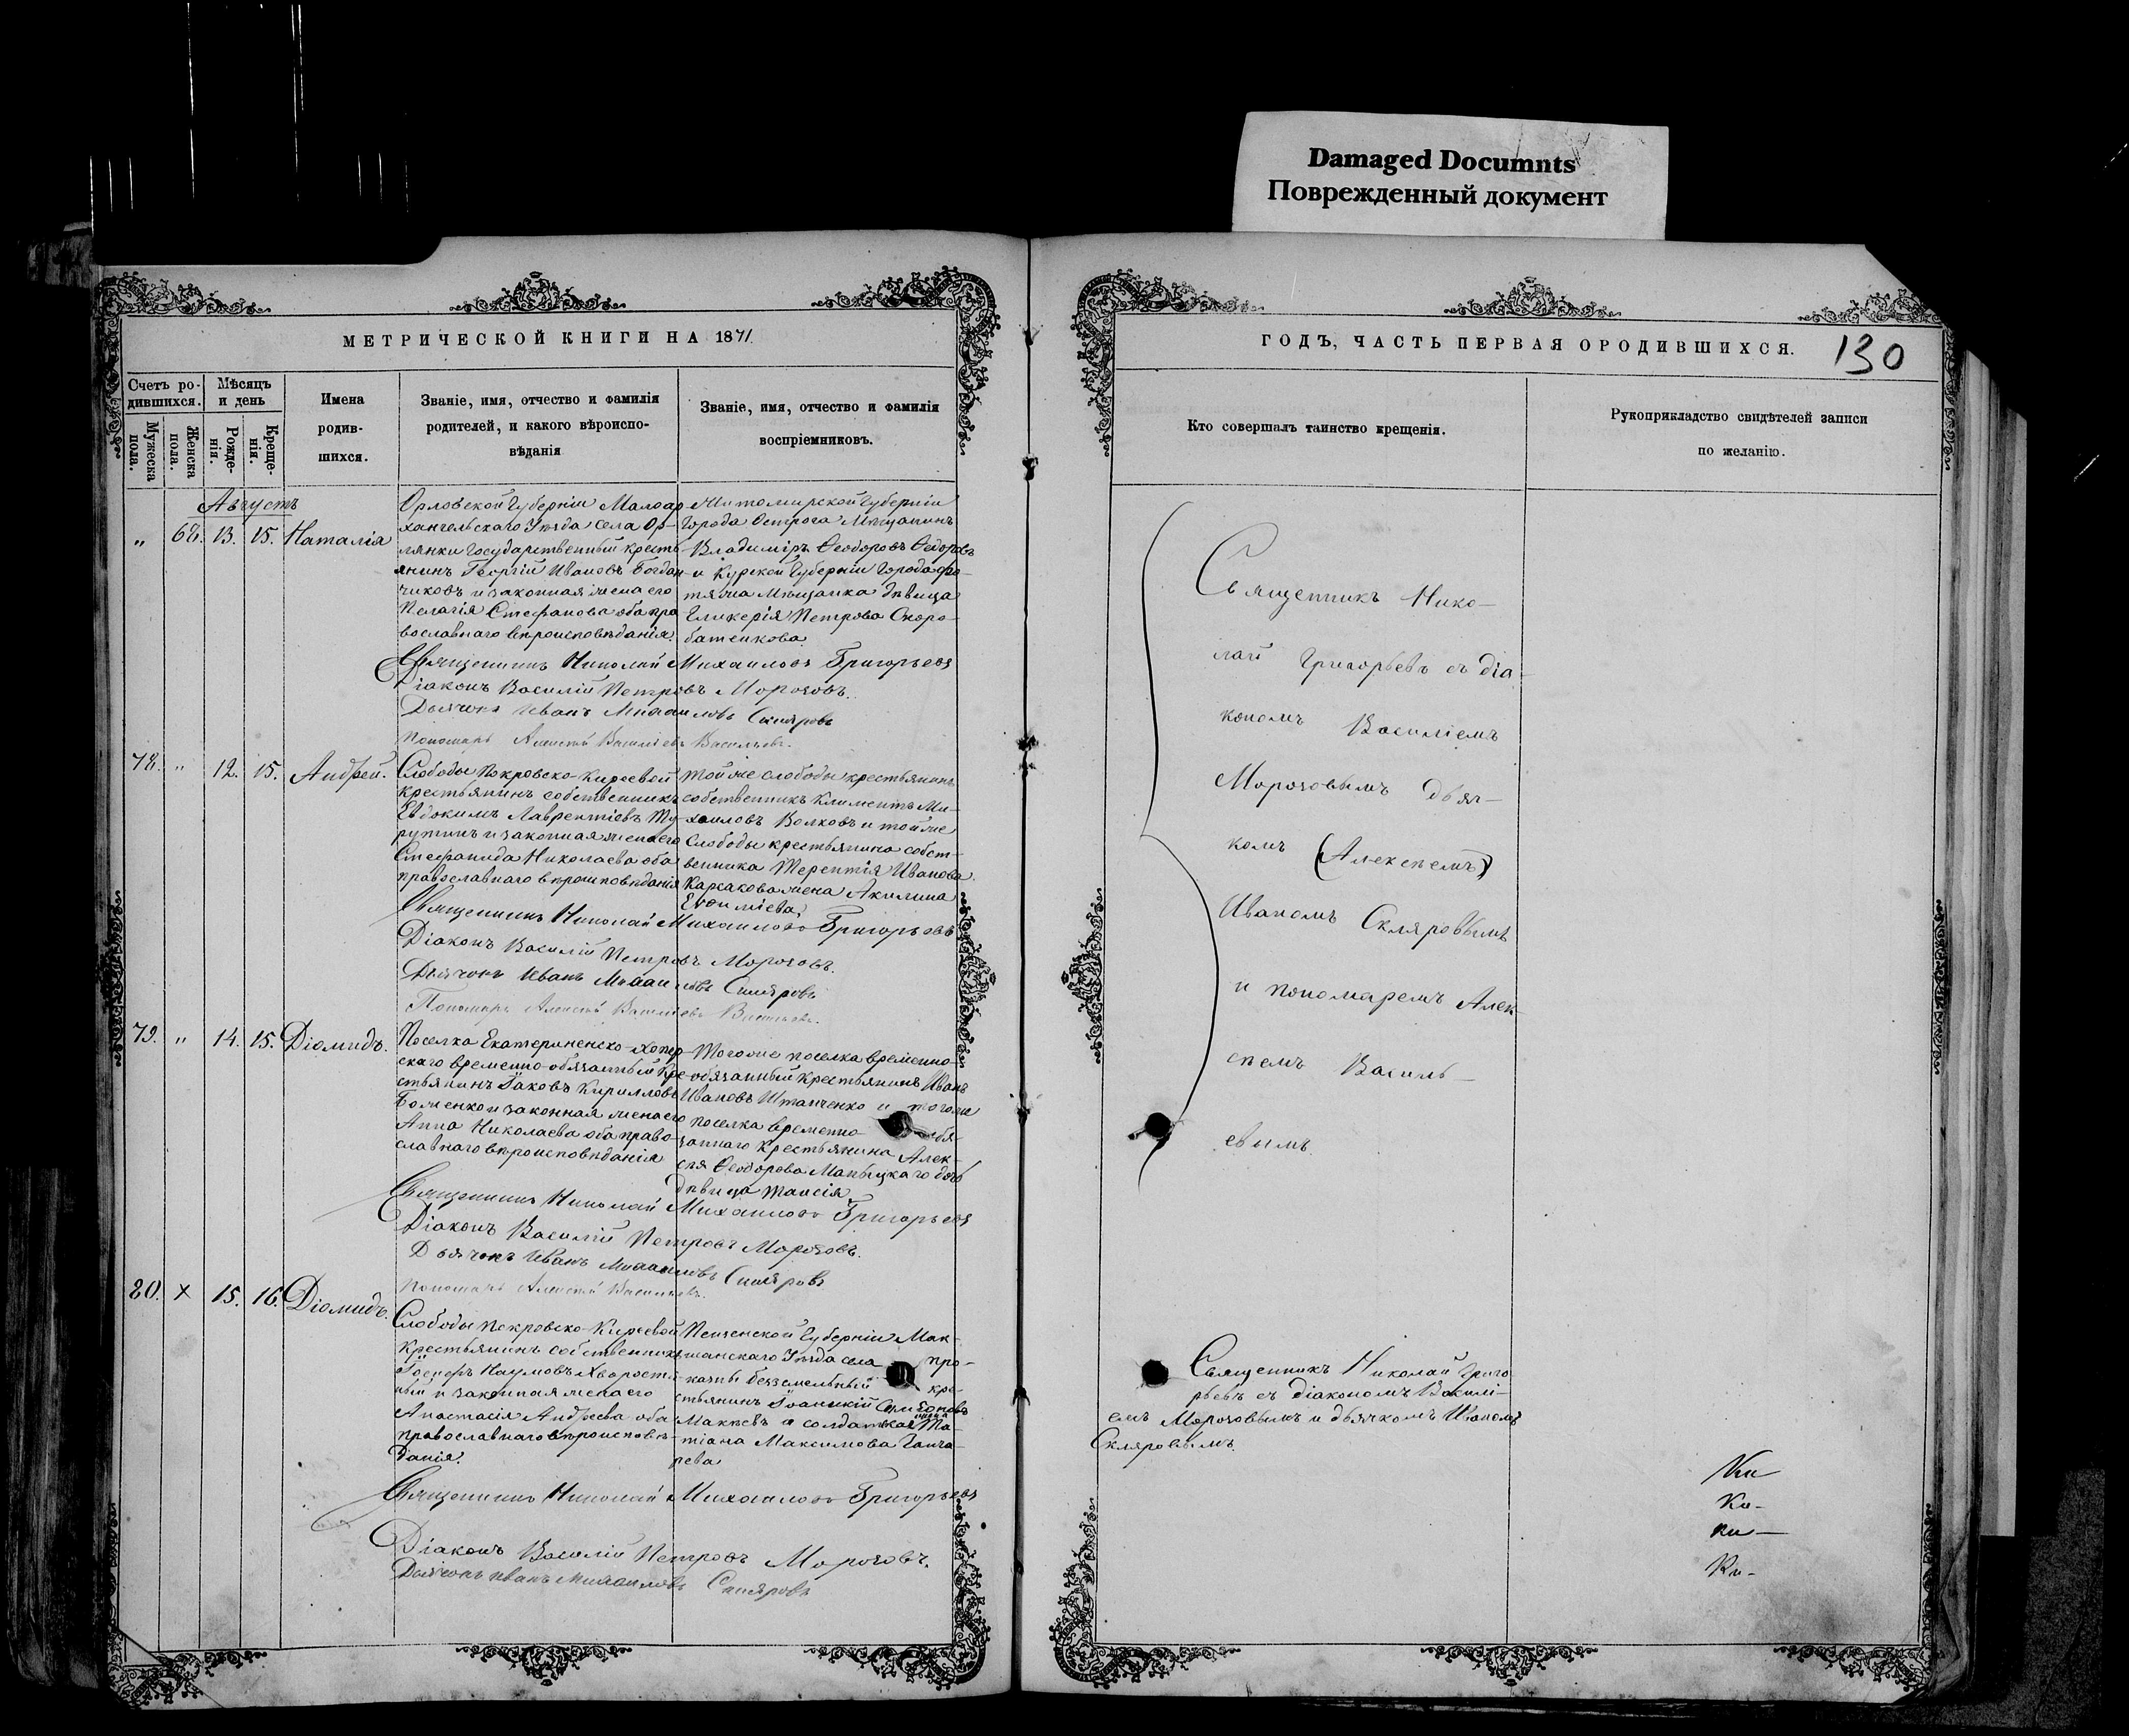 Damaged Documnts
Поврежденный документ
МЕТРИЧЕСКОЙ КНИГИ НА 1871
Счетъ ро-
дившихся.
Мужеска
пола.
Женска
пола.
Мѣсяцъ
и день
Рожде-
нія.
Креще-
нія.
Имена
родив-
шихся.
Званіе, имя, отчество и фамилія
родителей, и какого вѣроиспо-
вѣданія
Званіе, имя, отчество и фамилія
воспріемниковъ.
Августъ
„ 68. 13. 15. Наталія
Орловской Губерніи Малоар
хангельскаго Уѣзда села Ор-
лянки Государственный кресть
янинъ Георгій Ивановъ Богдан
чиковъ и законная жена его
Пелагія Стефанова оба пра
вославнаго вѣроисповѣданія.
Житомирской Губерніи
Города Острога Мѣщанинъ
Владиміръ Ѳеодоровъ Ѳедоровъ
и Курской Губерніи Города
Мѣщанка дѣвица
Гликерія Петрова Скоро-
батенкова
Священникъ Николай Михаиловъ Григорьевъ
Діаконъ Василій Петровъ Морозовъ.
Дьячокъ Иванъ Михаиловъ Скляровъ
Пономарь Алексѣй Васильевъ.
78. „ 12. 15. Андрей.
Слободы Покровско-Киреевой
крестьянинъ собственникъ
Евдокимъ Лаврентіевъ Ту-
рутинъ и законная жена его
Стефанида Николаева оба
православнаго вѣроисповѣданія
Той же слободы крестьянинъ
собственникъ Климентъ Ми-
хаиловъ Волховъ и той же
Слободы крестьянина собст-
венника Терентія Иванова
Карсакова жена Акилина
Евфиміева
Священникъ Николай Михаиловъ Григорьевъ
Діаконъ Василій Петровъ Морозовъ.
Дьячокъ Иванъ Михаиловъ Скляровъ
Пономарь Алексѣй Васильевъ.
79. „ 14. 15. Діомидъ.
Поселка Екатериненско-Хопер-
скаго временно-обязанный кре-
стьянинъ Іаковъ Кирилловъ
Боженко и законная жена его
Анна Николаева оба право-
славнаго вѣроисповѣданія
Того же поселка временно-
обязанный крестьянинъ Иванъ
Ивановъ Штанченко и того же
поселка временно- обя-
заннаго крестьянина Алек-
сѣя Ѳеодорова Маныцкаго дочь
дѣвица Таисія
Священникъ Николай Михаиловъ Григорьевъ
Діаконъ Василій Петровъ Морозовъ.
Дьячокъ Иванъ Михаиловъ Скляровъ
Пономарь Алексѣй Васильевъ.
80. х 15. 16. Діомидъ.
Слободы Покровско-Киреевой
Крестьянинъ собственникъ
Іосифъ Наумовъ Хворостя-
ный и законная жена его
Анастасія Андреева оба
православнаго вѣроисповѣ-
данія.
Пензенской Губерніи Мок-
шанскаго Уѣзда села про-
казны безземельный кре-
стьянинъ Іоанникій Симеоновъ
Макѣевъ и солдатская Та-
тіана Максимова Ганча-
рева
Священникъ Николай Михаиловъ Григорьевъ
Діаконъ Василій Петровъ Морозовъ.
Дьячокъ Иванъ Михаиловъ Скляровъ
ГОДЪ, ЧАСТЬ ПЕРВАЯ О РОДИВШИХСЯ.
130
Кто совершалъ таинство крещенія.
Рукоприкладство свидѣтелей записи
по желанію.
Священникъ Нико-
лай Григорьевъ съ діа-
кономъ Василіемъ
Морозовымъ дьяч-
комъ (Алексѣемъ)
Иваномъ Скляровымъ
и пономаремъ Алек
сѣемъ Василь-
евымъ.
Священникъ Николай Григо
рьевъ съ діакономъ Василі-
емъ Морозовымъ и дьячкомъ Иваномъ
Скляровымъ.